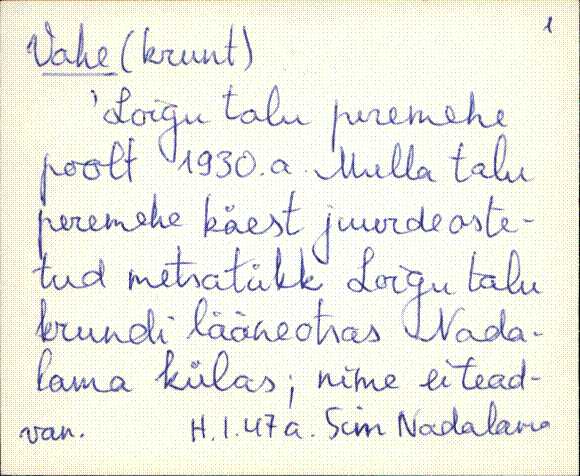 1
Vahe (krunt)
'Loigu talu peremehe
poolt 1930.a. Mulla talu
peremehe käest juurdeoste-
tud metsatükk Loigu talu
krundi lääneotsas Nada-
lama külas; nime ei tead-
van. H. I. 47 a. Sim Nadalama